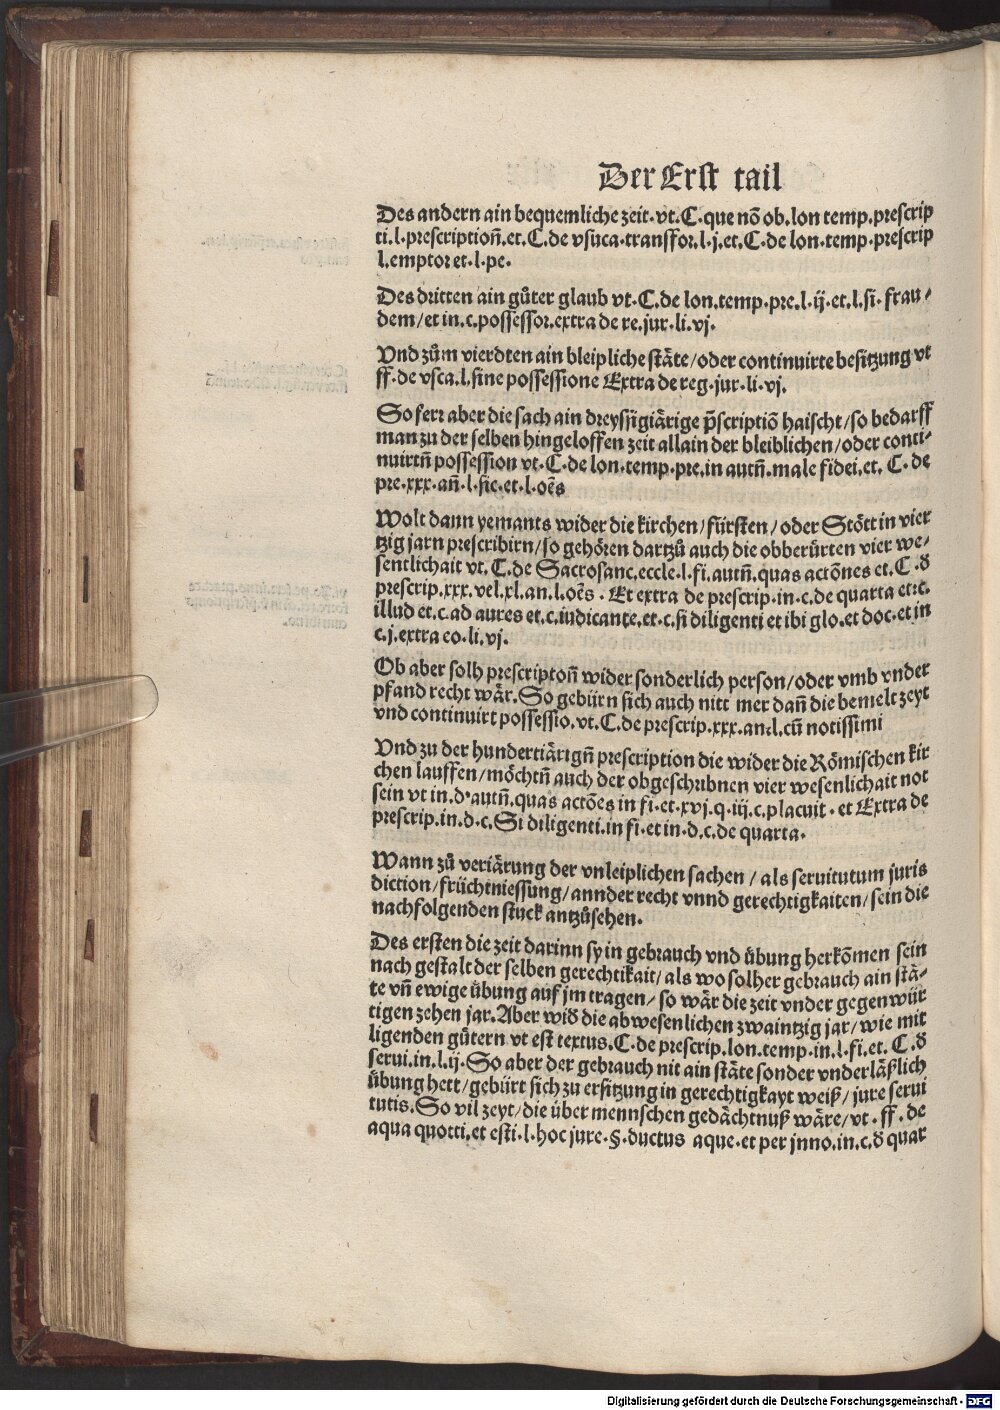 Der Erst tail
Des andern ain bequemliche zeit·vt.C·que nō ob.lon temp.prescrip
ti.l·prescriptioñ.et.C.de vsuca·transffor.l·j.et.C·de lon·temp·prescrip
l.emptor et·l·pe·
Des dritten ain gůter glaub vt·C.de lon.temp·pre.l·ij·et.l.si·frau/
dem/et in.c.possessor.extra de re.jur.li.vj.
Vnd zům vierdten ain bleipliche stäte/oder continuirte besitzung vt
ff·de vsca.l.sine possessione Extra de reg·jur·li·vj.
So ferr aber die sach ain dreyssigiärige p̄scriptiō haischt/so bedarff
man zu der selben hingeloffen zeit allain der bleiblichen/oder conti-
nuirtñ possession vt·C·de lon·temp·pre.in autñ.male fidei.et. C·de
pre·xxx·añ·l·sic·et·l·oēs
Wolt dann yemants wider die kirchen/fürsten/oder Stött in vier
tzig jarn prescribirn/so gehören dartzů auch die obberürten vier we-
sentlichait vt. C.de Sacrosanc.eccle·l·fi.autñ.quas actōnes et.C·ð
prescrip.xxx.vel.xl.an.l.oēs·Et extra de prescrip·in·c.de quarta et·c.
illud et.c.ad aures et.c.iudicante.et·c.si diligenti et ibi glo.et doc·et in
c.j.extra eo·li.vj.
Ob aber solh prescriptoñ wider sonderlich person/oder vmb vnder
pfand recht wär.So gebürn sich auch nitt mer dañ die bemelt zeyt
vnd continuirt possessio.vt.C.de prescrip.xxx.an·l.cū notissimi
Vnd zu der hundertiärigñ prescription die wider die Römischen kir
chen lauffen/möchtñ auch der obgeschribnen vier wesenlichait not
sein vt in.d'autñ.quas actōes in fi·et·xvj.q·iij.c.placuit·et Extra de
prescrip.in.d·c.Si diligenti.in fi·et in·d.c.de quarta.
Wann zů veriärung der vnleiplichen sachen/als seruitutum juris
diction/früchtniessung/annder recht vnnd gerechtigkaiten/sein die
nachfolgenden stuck antzůsehen.
Des ersten die zeit darinn sy in gebrauch vnd übung herkōmen sein
nach gestalt der selben gerechtikait/als wo solher gebrauch ain stä-
te vñ ewige übung auf jm tragen/so wär die zeit vnder gegenwür
tigen zehen jar.Aber wið die abwesenlichen zwaintzig jar/wie mit
ligenden gütern vt est textus.C·de prescrip.lon.temp·in.l.fi.et.C.ð
serui.in.l.ij·So aber der gebrauch nit ain stäte sonder vnderläßlich
übung hett/gebürt sich zu ersitzung in gerechtigkayt weiß/jure serui
tutis.So vil zeyt/die über mennschen gedächtnuß wäre/vt·ff·de
aqua quotti.et esti.l·hoc jure·§·ductus aque·et per jnno.in.c.ð quar
Digitalisierung gefördert durch die Deutsche Forschungsgemeinschaft - DFG